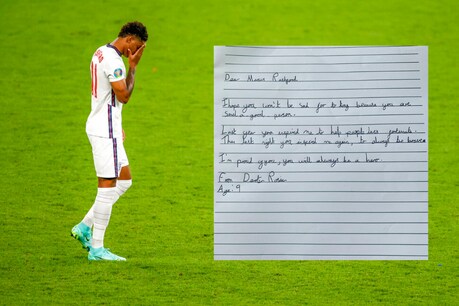 11
Dear Marcus Rashford
I hope you won't be sad for to long because you are
such a good person.
Last year you inspired me to help people less fortunate.
Then last night you inspired me again, to always be brave
I'm proud of you, you will always be a hero.
From Dexter Rosier
Age: 9